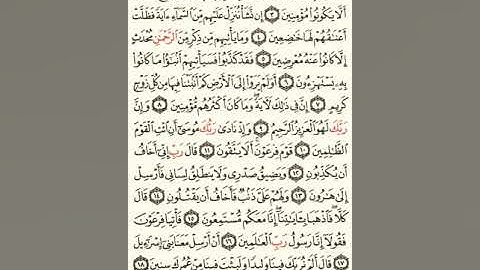 أَلَّا يَكُونُوا۟ مُؤْمِنِينَ ٣ إِن نَّشَأْ نُنَزِّلْ عَلَيْهِم مِّنَ ٱلسَّمَآءِ ءَايَةً فَظَلَّتْ
أَعْنَـٰقُهُمْ لَهَا خَـٰضِعِينَ ٤ وَمَا يَأْتِيهِم مِّن ذِكْرٍ مِّنَ ٱلرَّحْمَـٰنِ مُحْدَثٍ
إِلَّا كَانُوا۟ عَنْهُ مُعْرِضِينَ ٥ فَقَدْ كَذَّبُوا۟ فَسَيَأْتِيهِمْ أَنۢبَـٰٓؤُا۟ مَا كَانُوا۟
بِهِۦ يَسْتَهْزِءُونَ ٦ أَوَلَمْ يَرَوْا۟ إِلَى ٱلْأَرْضِ كَمْ أَنۢبَتْنَا فِيهَا مِن كُلِّ زَوْجٍ
كَرِيمٍ ٧ إِنَّ فِى ذَٰلِكَ لَـَٔايَةً ۖ وَمَا كَانَ أَكْثَرُهُم مُّؤْمِنِينَ ٨ وَإِنَّ
رَبَّكَ لَهُوَ ٱلْعَزِيزُ ٱلرَّحِيمُ ٩ وَإِذْ نَادَىٰ رَبُّكَ مُوسَىٰٓ أَنِ ٱئْتِ ٱلْقَوْمَ
ٱلظَّـٰلِمِينَ ١٠ قَوْمَ فِرْعَوْنَ ۚ أَلَا يَتَّقُونَ ١١ قَالَ رَبِّ إِنِّىٓ أَخَافُ
أَن يُكَذِّبُونِ ١٢ وَيَضِيقُ صَدْرِى وَلَا يَنطَلِقُ لِسَانِى فَأَرْسِلْ
إِلَىٰ هَـٰرُونَ ١٣ وَلَهُمْ عَلَىَّ ذَنۢبٌ فَأَخَافُ أَن يَقْتُلُونِ ١٤ قَالَ
كَلَّا ۖ فَٱذْهَبَا بِـَٔايَـٰتِنَآ ۖ إِنَّا مَعَكُم مُّسْتَمِعُونَ ١٥ فَأْتِيَا فِرْعَوْنَ
فَقُولَآ إِنَّا رَسُولُ رَبِّ ٱلْعَـٰلَمِينَ ١٦ أَنْ أَرْسِلْ مَعَنَا بَنِىٓ إِسْرَٰٓءِيلَ
١٧ قَالَ أَلَمْ نُرَبِّكَ فِينَا وَلِيدًا وَلَبِثْتَ فِينَا مِنْ عُمُرِكَ سِنِينَ ١٨